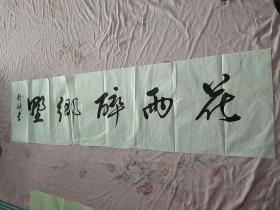 花雨醉乡野